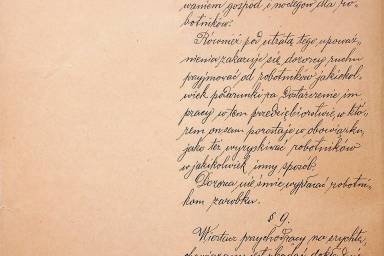 waniem gospod i noclegów dla ro-
botników.
Również pod utratą tego upoważ-
nienia zakazuje się dozorcy ruchu
przyjmować od robotników jakiekol-
wiek podarunki za dostarczenie im
pracy w tem przedsiębiorstwie, w któ-
rem on sam pozostaje w obowiązku,
jako też wyzyskiwać robotników
w jakikolwiek inny sposób.
Dozorca nie śmie wypłacać robotni-
kom zarobku.
§ 9.